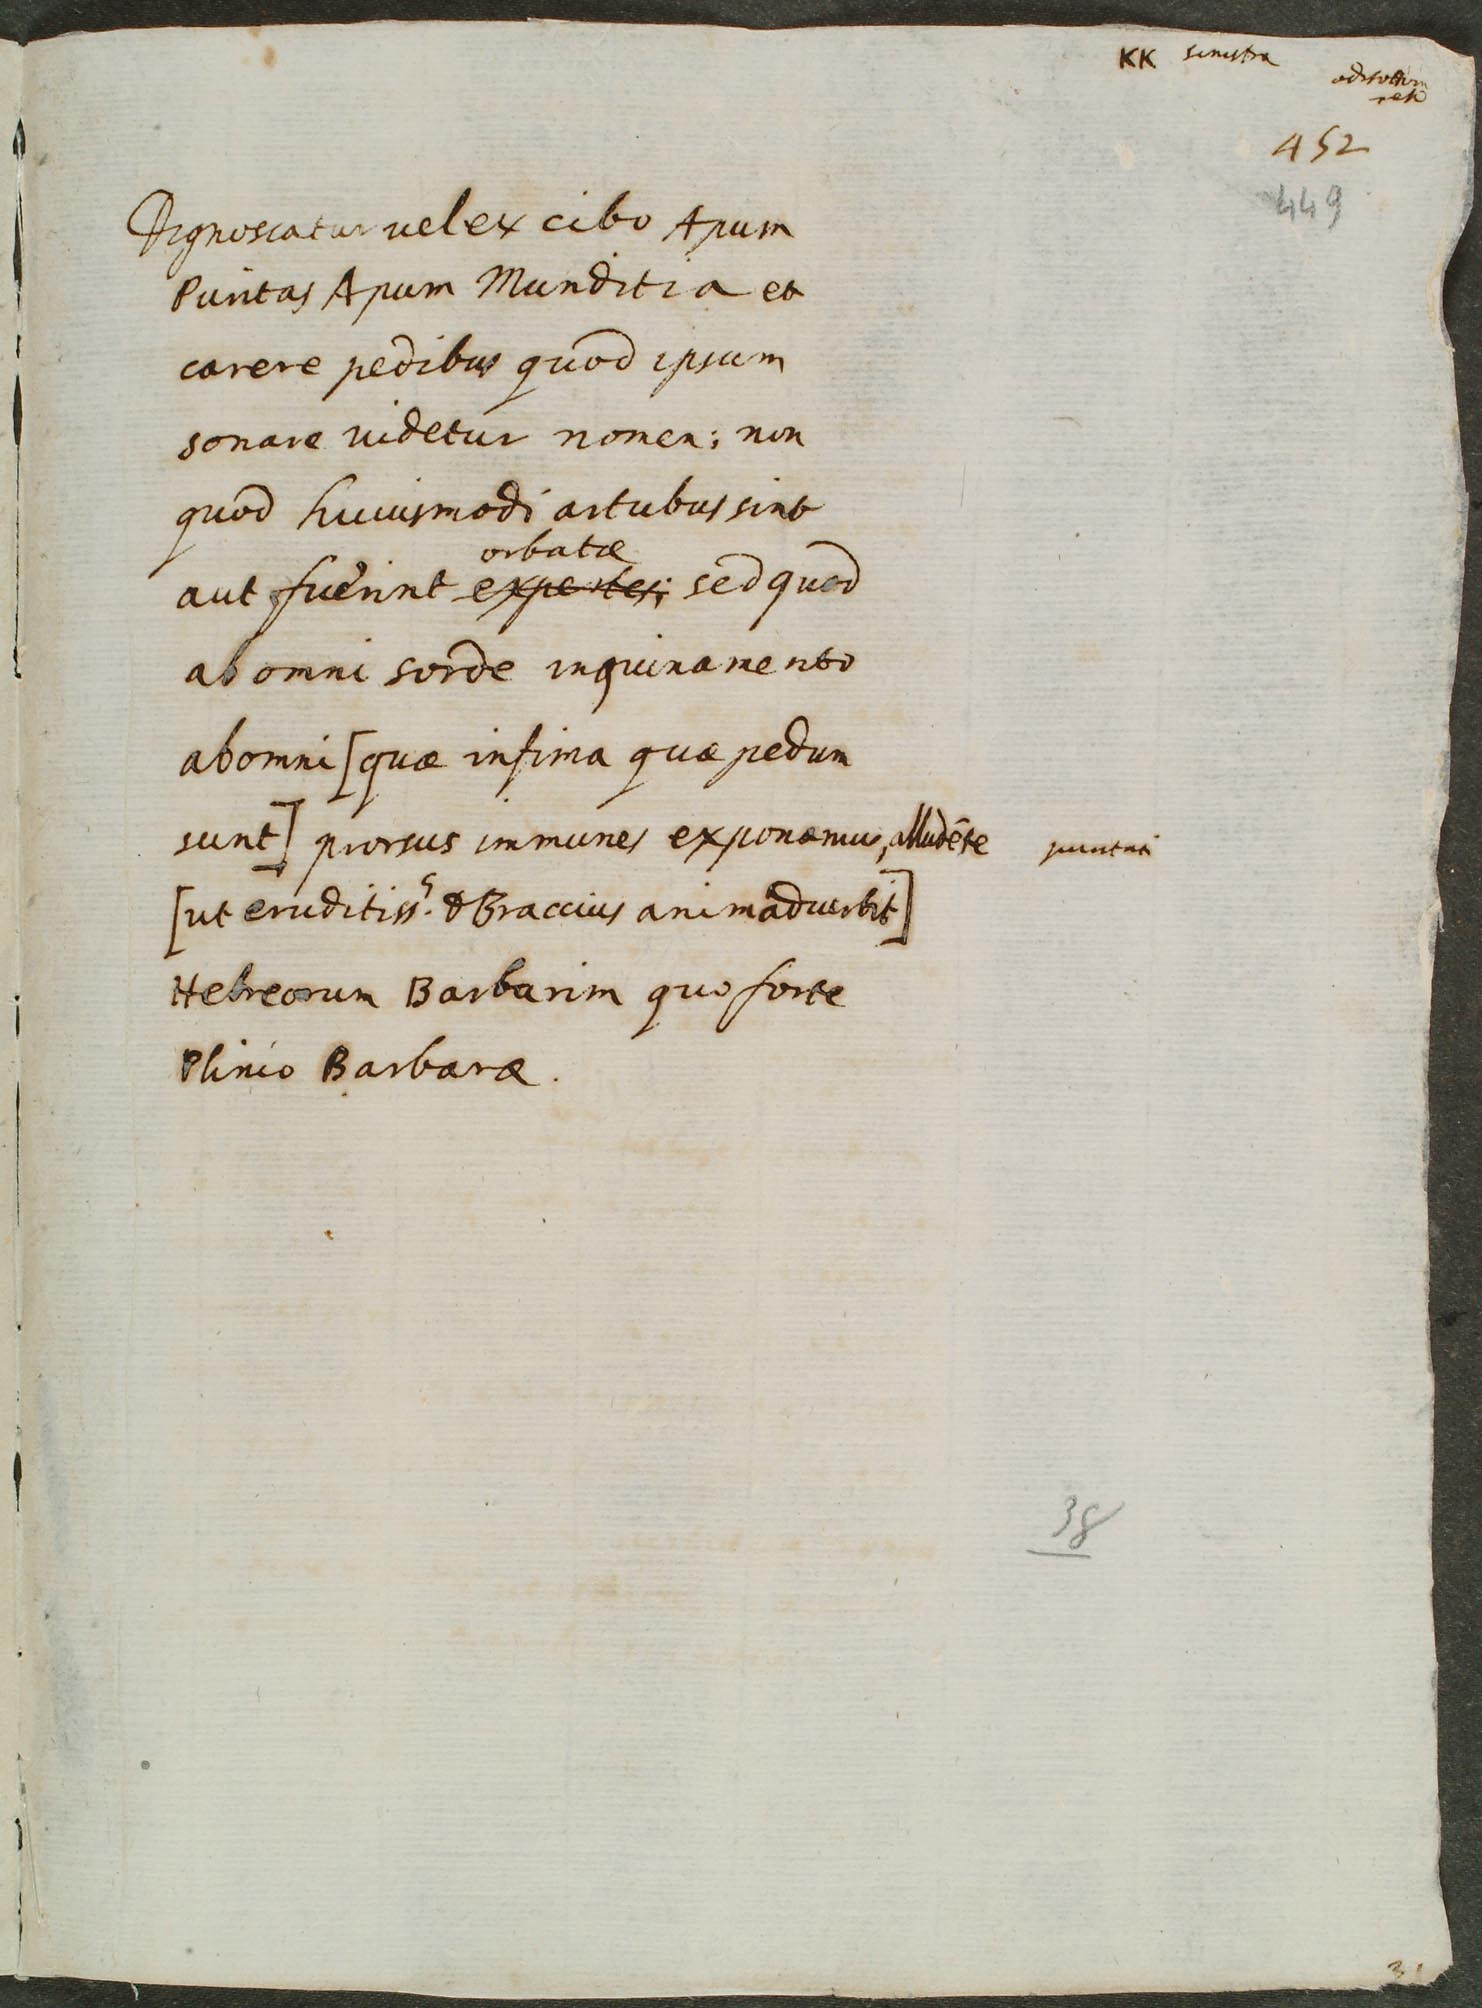 KK sinistra
452
449
Dignoscatur uel ex cibo Apum
Puritas Apum Munditia et
carere pedibus quod ipsum
sonare uidetur nomen; non
quod huiusmodi artubus sint
orbatæ
aut fuerint expertes; sed quod
ab omni sorde inquinamento
ab omni [quæ infima quæ pedum
sunt] prorsus immunes exponamus, alludēte puritati
[ut eruditiss.s Braccius animaduertit]
Hebreorum Barbarim quo forte
Plinio Barbaræ.
38
31